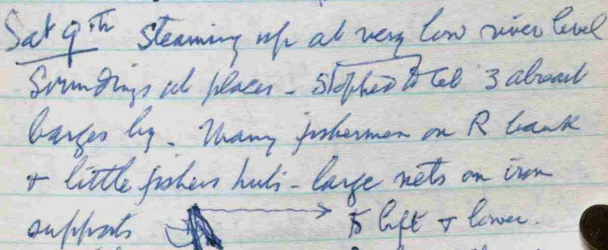 Sat 9th Steaming up at very low river level
Soundings at places - Stopped to let 3 abreast
barges by - Many fishermen on R bank
& little fishers huts - large nets on iron
supports → to lift & lower.